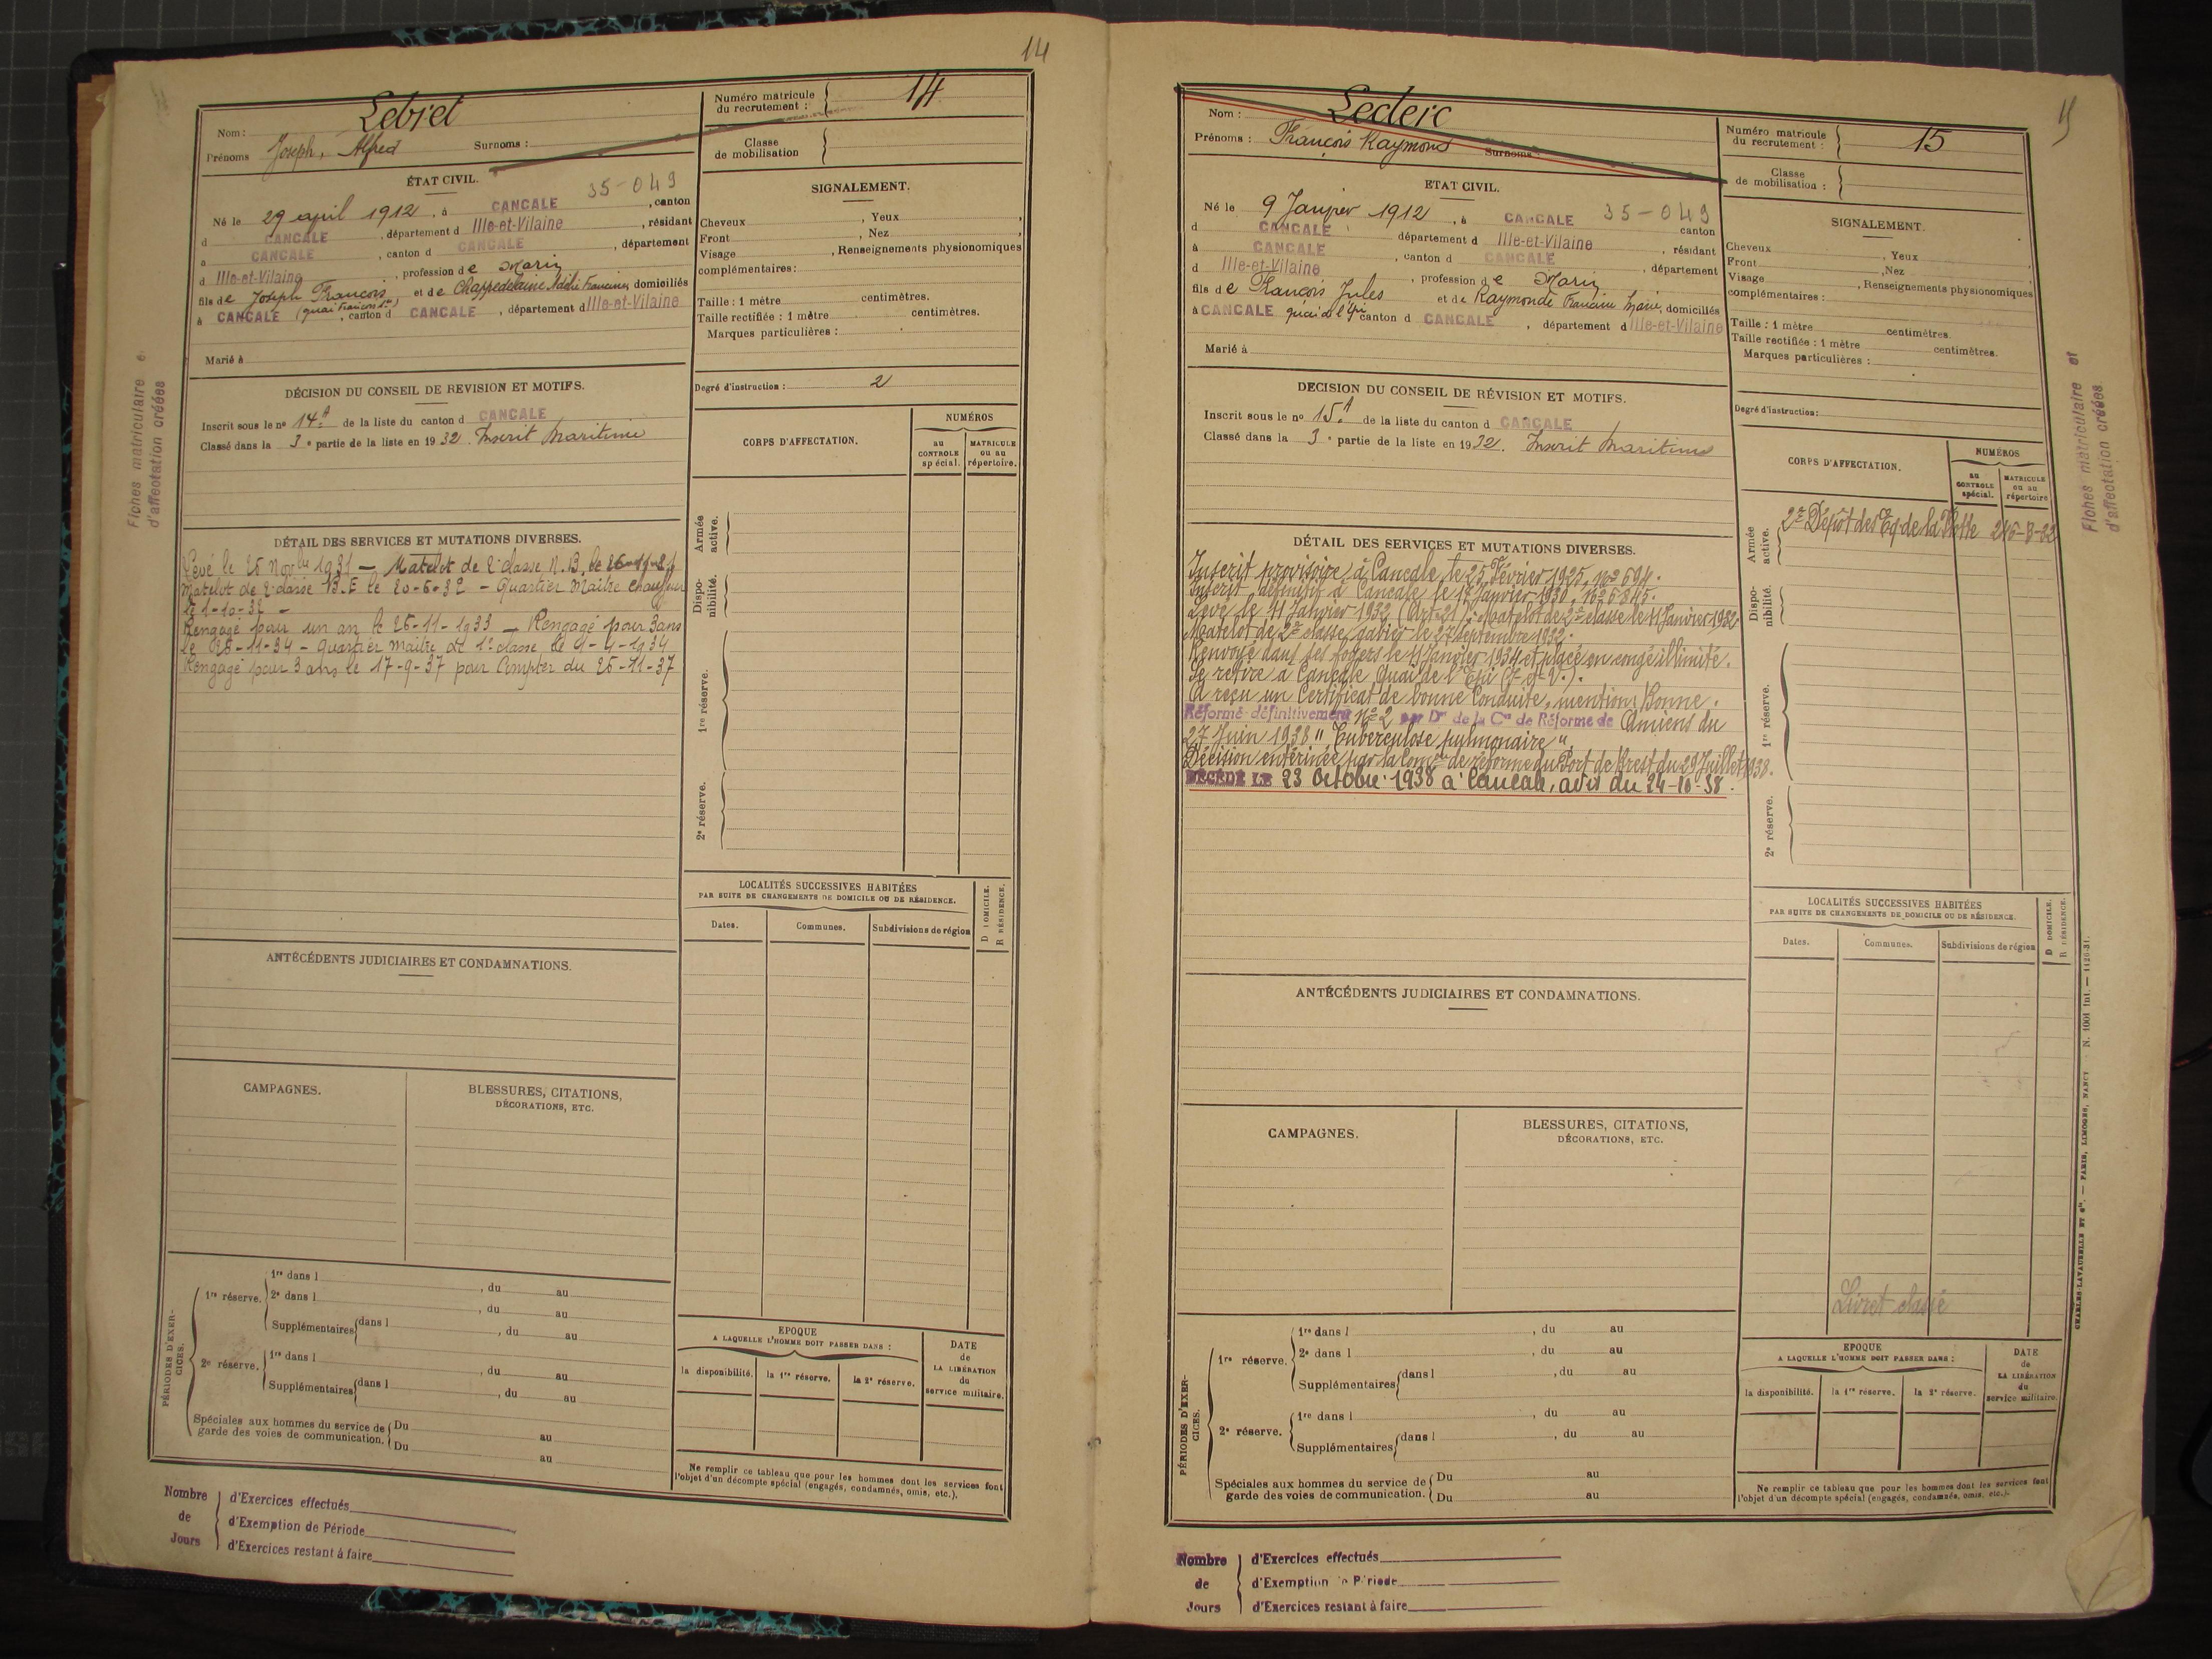 14
Nom : Lebret
Prénoms Joseph, Alfred Surnoms :
Numéro matricule du recrutement : 14
Classe de mobilisation
ÉTAT CIVIL.
35-049
Né le 29 april 1912, à CANCALE, canton
d CANCALE, département d Ille-et-Vilaine, résidant
à CANCALE, canton d CANCALE, département
d Ille-et-Vilaine, profession de Marin
fils de Joseph François et de Chappedelaine Adèle Francine, domiciliés
à CANCALE, canton d CANCALE, département d Ille-et-Vilaine
Marié à
SIGNALEMENT.
Cheveux , Yeux ,
Front , Nez ,
Visage , Renseignements physionomiques
complémentaires :
Taille : 1 mètre centimètres.
Taille rectifiée : 1 mètre centimètres.
Marques particulières :
Degré d'instruction : 2
DÉCISION DU CONSEIL DE REVISION ET MOTIFS.
Inscrit sous le no 14A de la liste du canton d CANCALE
Classé dans la 3e partie de la liste en 1932. Inscrit Maritime
DÉTAIL DES SERVICES ET MUTATIONS DIVERSES.
Levé le 25 Novbre 1931 — Matelot de 2e classe N.B. le
Matelot de 2e classe B.E le 20-6-32 - Quartier Maître Chauffeur
le 1-10-32 -
Rengagé pour un an le 25-11-1933 — Rengagé pour 3 ans
le 25-11-34 - Quartier maître de 1e classe le 1-4-1934
Rengagé pour 3 ans le 17-9-37 pour Compter du 25-11-37
Fiches matriculaire e
d'affectation créées
CORPS D'AFFECTATION.
NUMÉROS
au CONTROLE spécial.
MATRICULE ou au répertoire.
Armée active.
Disponibilité.
1re réserve.
2e réserve.
LOCALITÉS SUCCESSIVES HABITÉES
PAR SUITE DE CHANGEMENTS DE DOMICILE OU DE RÉSIDENCE.
D DOMICILE.
R RÉSIDENCE.
Dates. Communes. Subdivisions de région
ANTÉCÉDENTS JUDICIAIRES ET CONDAMNATIONS.
CAMPAGNES.
BLESSURES, CITATIONS,
DÉCORATIONS, ETC.
PÉRIODES D'EXERCICES.
1re réserve. 1re dans l , du au
2e dans l , du au
Supplémentaires dans l , du au
2e réserve. 1re dans l , du au
Supplémentaires dans l , du au
Spéciales aux hommes du service de garde des voies de communication. Du au
Du au
EPOQUE
A LAQUELLE L'HOMME DOIT PASSER DANS :
la disponibilité. la 1re réserve. la 2e réserve.
DATE de LA LIBÉRATION du service militaire.
Ne remplir ce tableau que pour les hommes dont les services font
l'objet d'un décompte spécial (engagés, condamnés, omis, etc.).
Nombre de Jours
d'Exercices effectués
d'Exemption de Période
d'Exercices restant à faire
15
Nom : Leclerc
Prénoms : François Raymond Surnoms :
Numéro matricule du recrutement : 15
Classe de mobilisation :
ETAT CIVIL.
Né le 9 Janvier 1912, à CANCALE 35-049
d CANCALE, canton
à CANCALE département d Ille-et-Vilaine, résidant
d Ille-et-Vilaine, canton d CANCALE, département
, profession de Marin
fils de François Jules et de Raymonde Francine Marie, domiciliés
à CANCALE quai de l'Epi canton d CANCALE, département d Ille-et-Vilaine
Marié à
SIGNALEMENT.
Cheveux , Yeux ,
Front , Nez
Visage , Renseignements physionomiques
complémentaires :
Taille : 1 mètre centimètres.
Taille rectifiée : 1 mètre centimètres.
Marques particulières :
Degré d'instruction :
DECISION DU CONSEIL DE RÉVISION ET MOTIFS.
Inscrit sous le no 15A de la liste du canton d CANCALE
Classé dans la 3e partie de la liste en 1932. Inscrit Maritime
DÉTAIL DES SERVICES ET MUTATIONS DIVERSES.
Inscrit provisoire à Cancale le 25 Février 1925, No 694.
Inscrit définitif à Cancale le 17 Janvier 1930, No 5845.
Levé le 11 Janvier 1932 (Art. 21); Matelot de 2e classe le 11 Janvier 1932
Matelot de 2e classe gabier le 27 septembre 1932.
Renvoyé dans ses foyers le 11 Janvier 1934 et placé en congé illimité.
Se retire à Cancale Quai de l'Epi (I-et-V.).
A reçu un Certificat de bonne Conduite, mention Bonne.
Réformé définitivement No 2 par Dn de la Con de Réforme de Amiens du
27 Juin 1938 "Tuberculose pulmonaire"
Décision entérinée par la Comon de réforme du Port de Brest du 29 Juillet 1938.
DÉCÉDÉ LE 23 Octobre 1938 à Cancale, avis du 24-10-38.
CORPS D'AFFECTATION.
NUMÉROS
au CONTROLE spécial.
MATRICULE ou au répertoire
Armée active.
2e Dépôt des Eq. de la Flotte 246-B-32
Disponibilité.
1re réserve.
2e réserve.
Fiches matriculaire et
d'affectation créées
LOCALITÉS SUCCESSIVES HABITÉES
PAR SUITE DE CHANGEMENTS DE DOMICILE OU DE RÉSIDENCE.
D DOMICILE.
R RÉSIDENCE.
Dates. Communes. Subdivisions de région
Livret classé
ANTÉCÉDENTS JUDICIAIRES ET CONDAMNATIONS.
CAMPAGNES.
BLESSURES, CITATIONS,
DÉCORATIONS, ETC.
PÉRIODES D'EXERCICES.
1re réserve. 1re dans l , du au
2e dans l , du au
Supplémentaires dans l , du au
2e réserve. 1re dans l , du au
Supplémentaires dans l , du au
Spéciales aux hommes du service de garde des voies de communication. Du au
Du au
EPOQUE
A LAQUELLE L'HOMME DOIT PASSER DANS :
la disponibilité. la 1re réserve. la 2e réserve.
DATE de LA LIBÉRATION du service militaire.
Ne remplir ce tableau que pour les hommes dont les services font
l'objet d'un décompte spécial (engagés, condamnés, omis, etc.).
CHARLES-LAVAUZELLE ET Cie. — PARIS, LIMOGES, NANCY N. 1001 int. — 1126-31.
Nombre de Jours
d'Exercices effectués
d'Exemption de Période
d'Exercices restant à faire